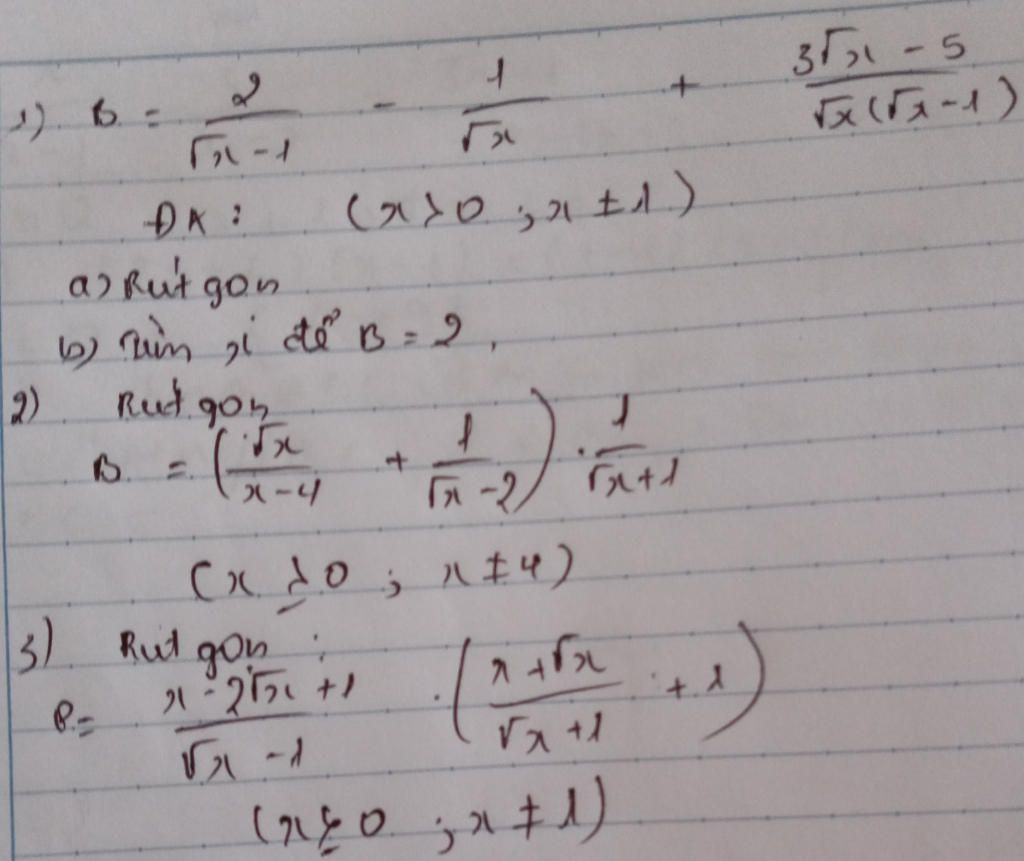 1) B = 2/(√x - 1) - 1/√x + (3√x - 5)/(√x(√x - 1))
ĐK: (x > 0 ; x ≠ 1)
a) Rút gọn
b) Tìm x để B = 2.
2) Rút gọn
B = (√x/(x - 4) + 1/(√x - 2)) · 1/(√x + 1)
(x ≥ 0 ; x ≠ 4)
3) Rút gọn :
P = (x - 2√x + 1)/(√x - 1) · ((x + √x)/(√x + 1) + 1)
(x ≥ 0 ; x ≠ 1)